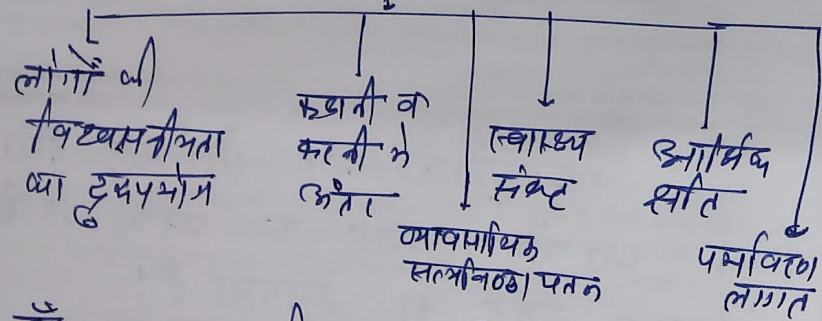 लोगों की
विश्वसनीयता
का दुरुपयोग
कथनी व
करनी में
अंतर
व्यावसायिक
सत्यनिष्ठा पतन
स्वास्थ्य
संकट
आर्थिक
क्षति
पर्यावरण
लागत